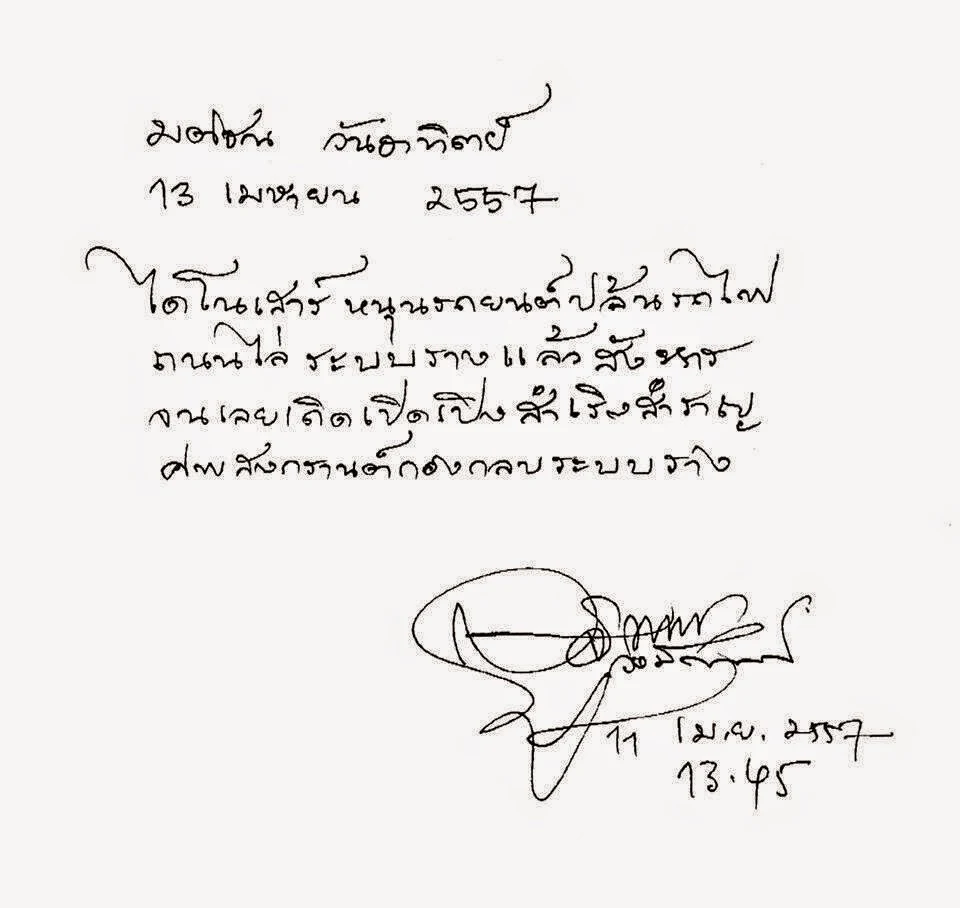 มติชน วันอาทิตย์
13 เมษายน 2557
ไดโนเสาร์ หนุนรถยนต์ปล้นรถไฟ
ถนนไล่ ระบบรางแล้ว สังหาร
จนเลยเถิดเปิดเปิง สำเริงสำราญ
ศพสงกรานต์กองกลบระบบราง
11 เม.ย. 2557
13.45